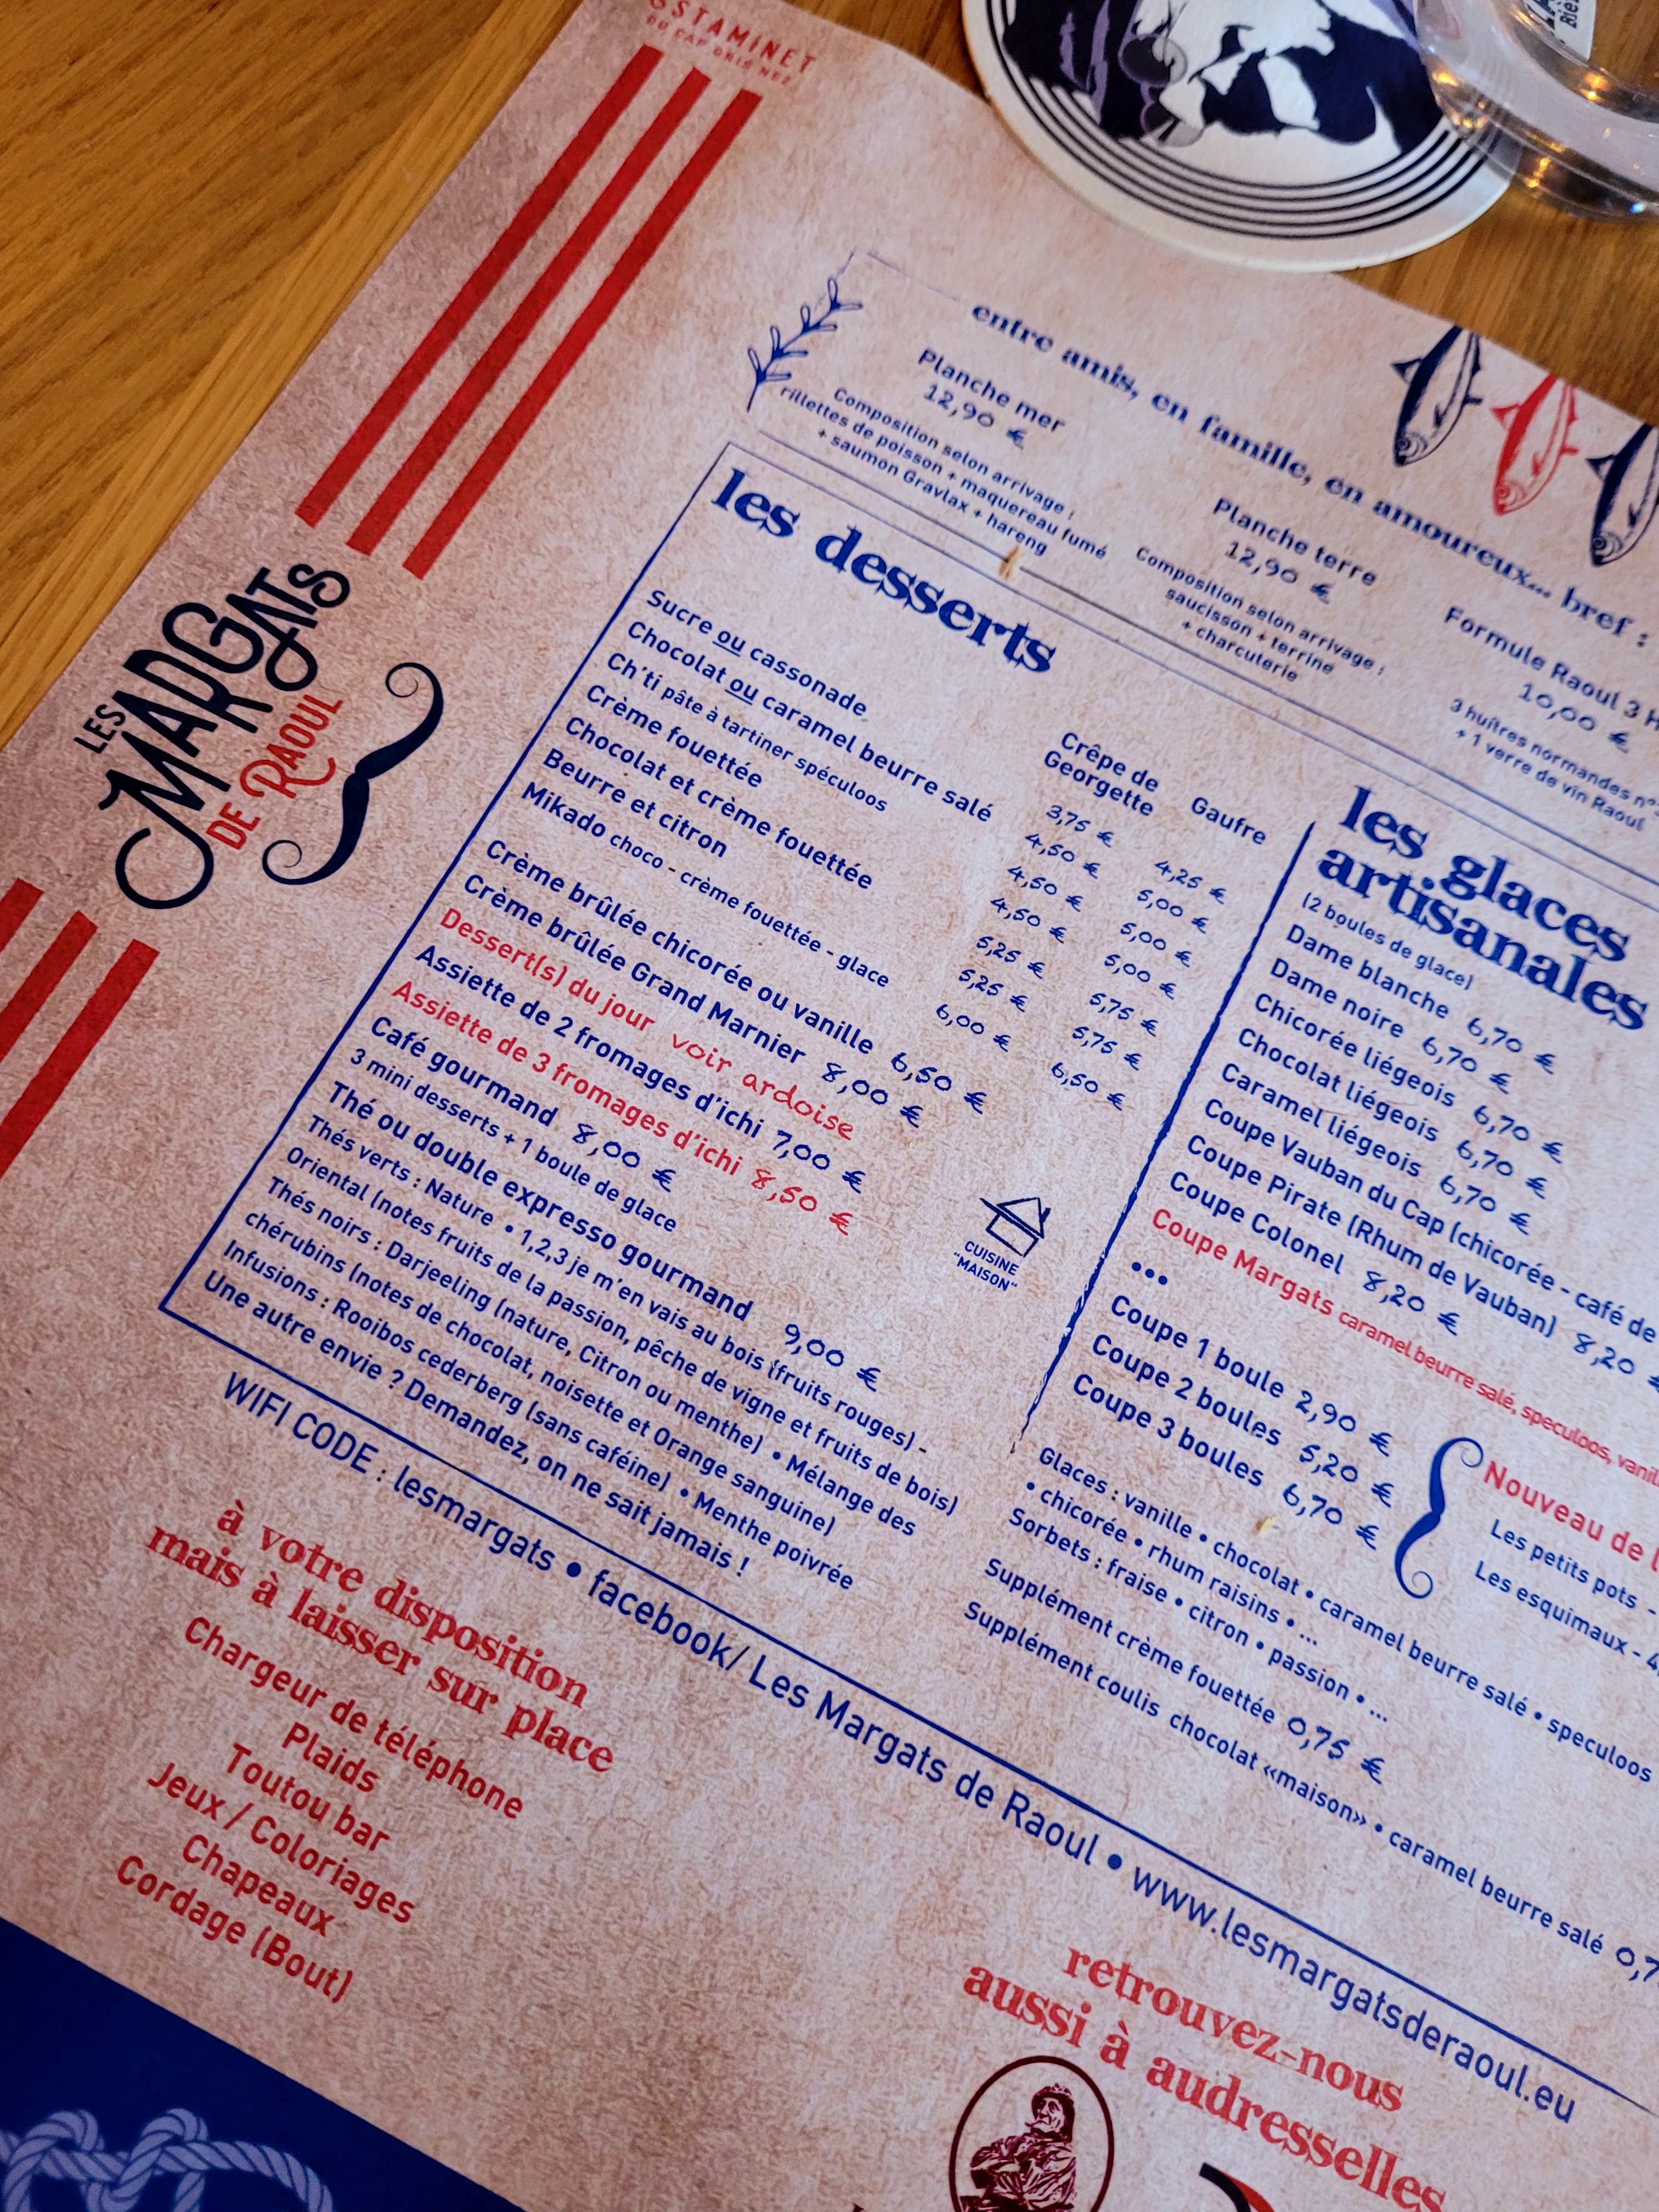 ESTAMINET
DU CAP GRIS NEZ
LES
MARGATS
DE RAOUL
entre amis, en famille, en amoureux... bref :
Planche mer
12,90 €
Composition selon arrivage :
rillettes de poisson + maquereau fumé
+ saumon Gravlax + hareng
Planche terre
12,90 €
Composition selon arrivage :
saucisson + terrine
+ charcuterie
Formule Raoul 3
10,00 €
3 huîtres normandes
+ 1 verre de vin Raoul
les desserts
Crêpe de
Georgette
Gaufre
Sucre ou cassonade 3,75 € 4,25 €
Chocolat ou caramel beurre salé 4,50 € 5,00 €
Ch'ti pâte à tartiner spéculoos 4,50 € 5,00 €
Crème fouettée 4,50 € 5,00 €
Chocolat et crème fouettée 5,25 € 5,75 €
Beurre et citron 5,25 € 5,75 €
Mikado choco - crème fouettée - glace 6,00 € 6,50 €
Crème brûlée chicorée ou vanille 6,50 €
Crème brûlée Grand Marnier 8,00 €
Dessert(s) du jour voir ardoise
Assiette de 2 fromages d'ichi 7,00 €
Assiette de 3 fromages d'ichi 8,50 €
Café gourmand 8,00 €
3 mini desserts + 1 boule de glace
Thé ou double expresso gourmand 9,00 €
Thés verts : Nature • 1,2,3 je m'en vais au bois (fruits rouges) -
Oriental (notes fruits de la passion, pêche de vigne et fruits de bois)
Thés noirs : Darjeeling (nature, Citron ou menthe) • Mélange des
chérubins (notes de chocolat, noisette et Orange sanguine)
Infusions : Rooibos cederberg (sans caféine) • Menthe poivrée
Une autre envie ? Demandez, on ne sait jamais !
CUISINE
"MAISON"
les glaces
artisanales
(2 boules de glace)
Dame blanche 6,70 €
Dame noire 6,70 €
Chicorée liégeois 6,70 €
Chocolat liégeois 6,70 €
Caramel liégeois 6,70 €
Coupe Vauban du Cap (chicorée - café de
Coupe Pirate (Rhum de Vauban) 8,20 €
Coupe Colonel 8,20 €
Coupe Margats caramel beurre salé, speculoos,
...
Coupe 1 boule 2,90 €
Coupe 2 boules 5,20 €
Coupe 3 boules 6,70 €
Nouveau de
Les petits pots -
Les esquimaux -
Glaces : vanille • chocolat • caramel beurre salé • speculoos
• chicorée • rhum raisins • ...
Sorbets : fraise • citron • passion • ...
Supplément crème fouettée 0,75 €
Supplément coulis chocolat «maison» • caramel beurre salé
WIFI CODE : lesmargats • facebook/ Les Margats de Raoul • www.lesmargatsderaoul.eu
à votre disposition
mais à laisser sur place
Chargeur de téléphone
Plaids
Toutou bar
Jeux / Coloriages
Chapeaux
Cordage (Bout)
retrouvez-nous
aussi à audresselles